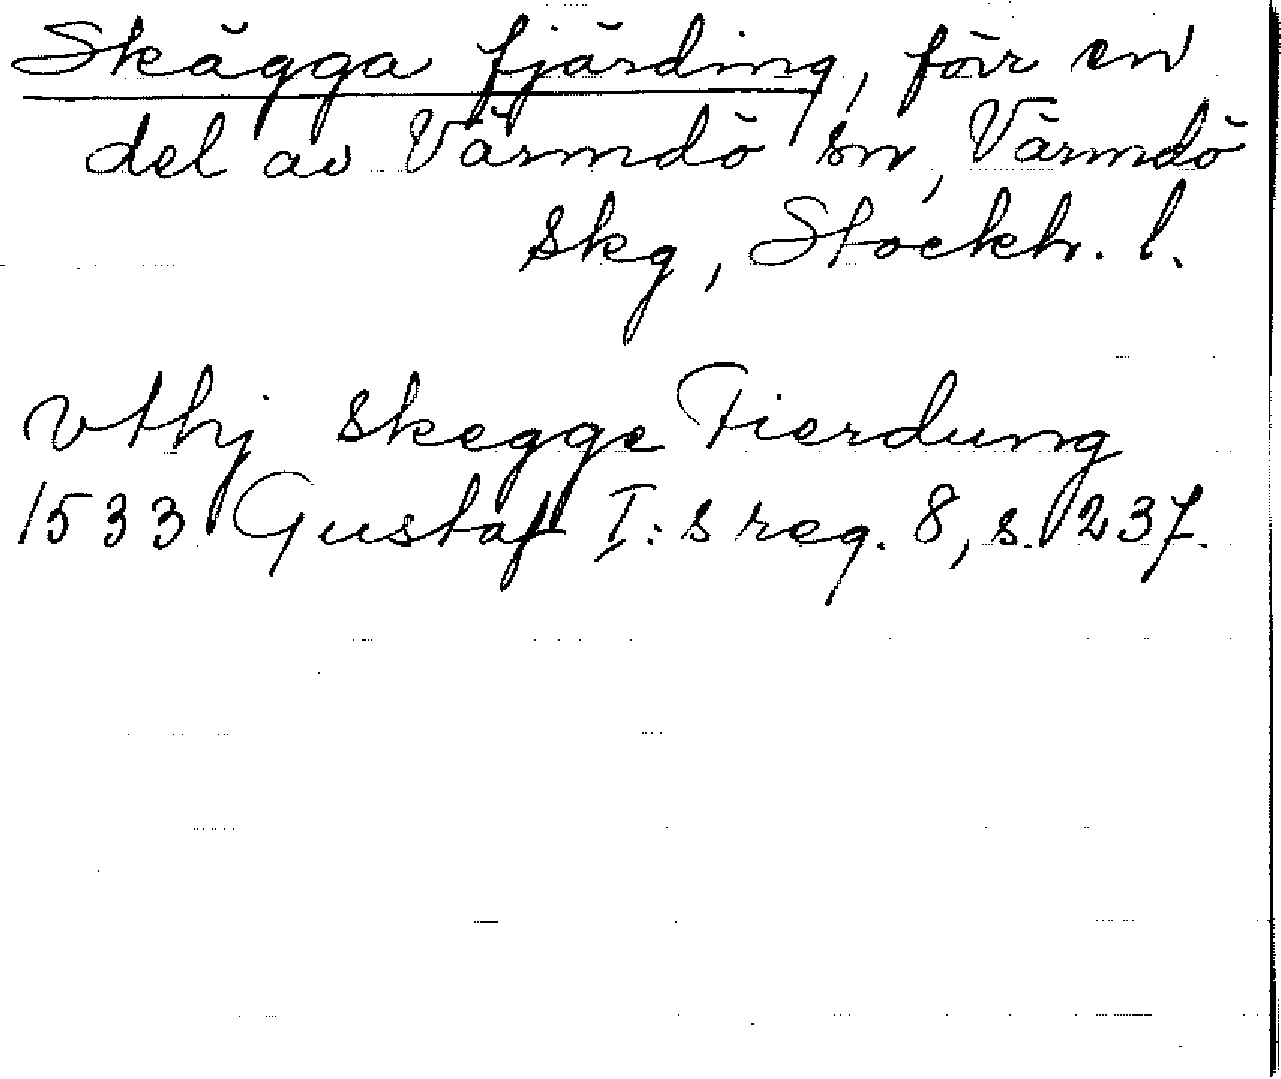 Skägga fjärding, förr en
del av Värmdö sn, Värmdö
skg, Stockh. l.
vthj Skegge Fierdung
1533 Gustaf I:s reg. 8, s. 237.